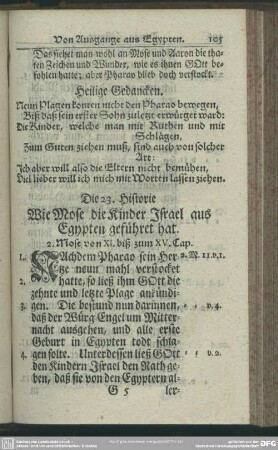 Von Ausgange aus Egypten. 105
Das siehet man wohl an Mose und Aaron die tha-
ten Zeichen und Wunder, wie es ihnen GOtt be-
fohlen hatte; aber Pharao blieb doch verstockt.
Heilige Gedancken.
Neun Plagen konten nicht den Pharao bewegen,
Biß daß sein erster Sohn zuletzt erwürget ward:
Die Kinder, welche man mit Ruthen und mit
Schlägen,
Zum Guten ziehen muß, sind auch von solcher
Art:
Ich aber will also die Eltern nicht bemühen,
Viel lieber will ich mich mit Worten lassen ziehen.
Die 23. Historie
Wie Mose die Kinder Israel aus
Egypten geführet hat.
2. Mose von XI. biß zum XV. Cap.
1. NAchdem Pharao sein Her- 2. M. 11. v. 1.
tze neun mahl verstocket
2. hatte, so ließ ihm GOtt die
zehnte und letzte Plage ankündi-
3. gen. Die bestund nun darinnen, v. 4.
daß der Würg-Engel um Mitter-
nacht ausgehen, und alle erste
Geburt in Egypten todt schla-
4. gen solte. Unterdessen ließ GOtt v. 2.
den Kindern Israel den Rath ge-
ben, daß sie von den Egyptern al-
G 5 ler-